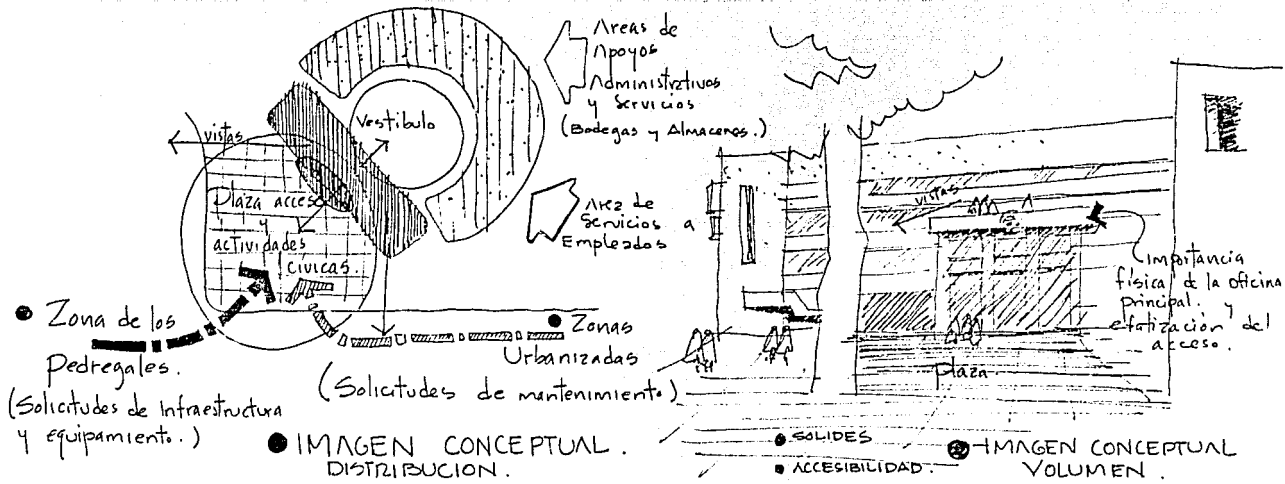 Areas de
Apoyos
Administrativos
y Servicios
(Bodegas y Almacenes.)
Vestíbulo
vistas
Plaza acceso
y
actividades
CIVICAS.
Area de
Servicios a
Empleados
● Zona de los
Pedregales.
(Solicitudes de Infraestructura
y equipamiento.)
● Zonas
Urbanizadas
(Solicitudes de mantenimiento)
● IMAGEN CONCEPTUAL.
DISTRIBUCION.
vistas
Importancia
física de la oficina
principal. y
efatización del
acceso.
Plaza.
● SOLIDES
● ACCESIBILIDAD.
● IMAGEN CONCEPTUAL
VOLUMEN.